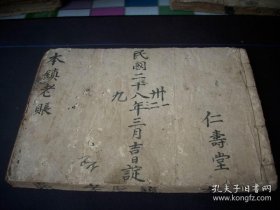 本鎮老賬
民國二十八年三月吉日諚
九
卅一
二
仁壽堂
孔夫子旧书网